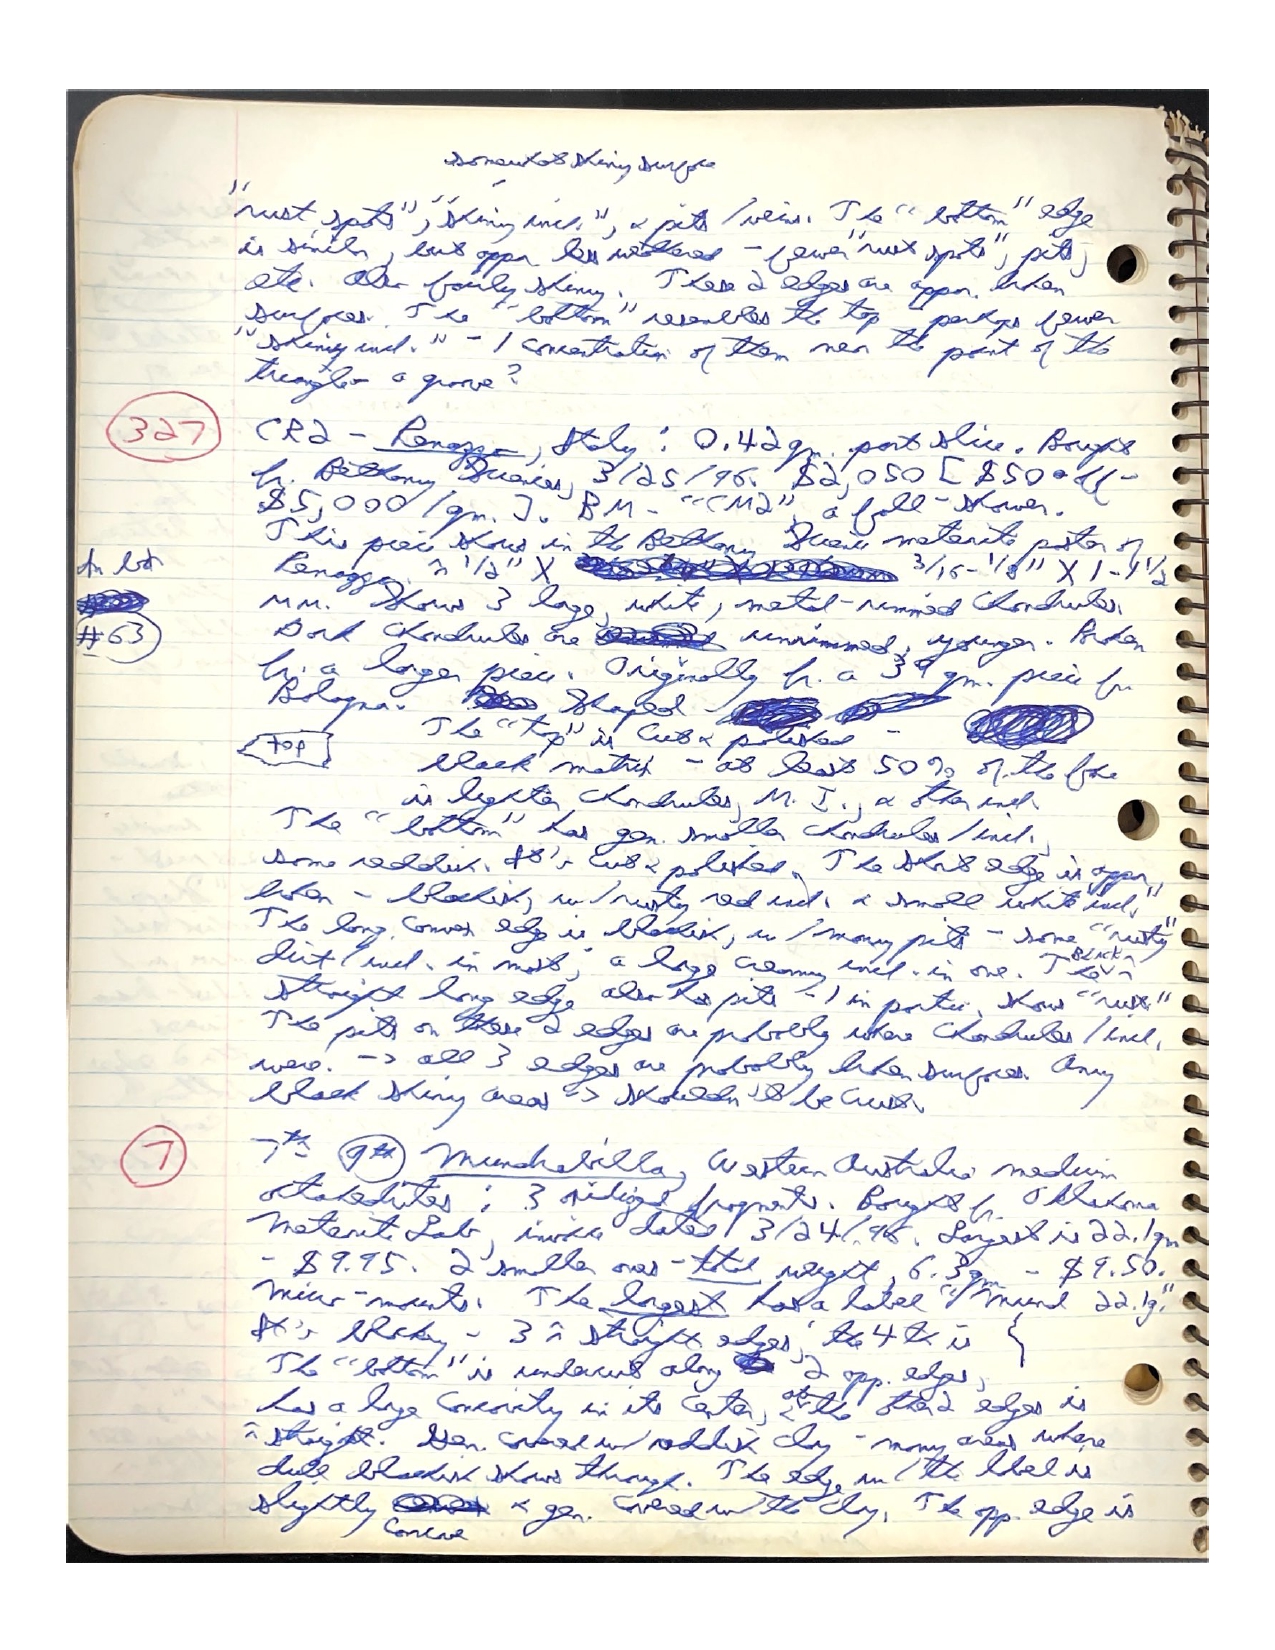 somewhat shiny surface
"rust spots", "shiny incl.", & pits/veins. The "bottom" edge
is similar, but appar. less weathered - fewer "rust spots", pits,
etc. Also fairly shiny. These 2 edges are appar. broken
surfaces. The "bottom" resembles the top - perhaps fewer
"shiny incl." - 1 concentration of them near the point of the
triangle - a groove?
327
CR2 - Renazzo, Italy: 0.42 gm. part slice. Bought
fr. Bethany Sciences, 3/25/96. $2,050 [$50 off -
$5,000/gm.]. BM - "CM2", a fall - shower.
This piece shows in the Bethany Science meteorite poster of
Renazzo. ≈ 1/2" X 3/16-1/8" X 1-1 1/2
mm. Shows 3 large, white, metal-rimmed chondrules.
In lot
#63
Dark chondrules are unrimmed, younger. Broken
fr. a larger piece. Originally fr. a 39 gm. piece fr.
Bologna. Shaped -
top
The "top" is cut & polished -
black matrix - at least 50% of the face
is lighter chondrules, M.I., & other incl.
The "bottom" has gen. smaller chondrules/incl.,
some reddish. It's cut & polished. The short edge is appar.
broken - blackish, w/rusty red incl. & small white incl.
The long convex edge is blackish, w/many pits - some "rusty"
dirt/incl. in most, a large creamy incl. in one. The
black
straight long edge also has pits - 1 in partic. shows "rust"
The pits on these 2 edges are probably where chondrules/incl.
were. -> all 3 edges are probably broken surfaces. Any
black shiny areas -> shouldn't be crust.
7
7th 9th Mundrabilla, Western Australia medium
octahedrites: 3 oxidized fragments. Bought fr. Oklahoma
Meteorite Lab, invoice dated 3/24/96. Largest is 22.1 gm
- $9.95. 2 smaller ones - total weight, 6.3 gm - $9.50.
Micro-mounts. The largest has a label "Mund 22.1g."
It's blocky - 3 ≈ straight edges, the 4th is {
The "bottom" is undercut along 2 opp. edges,
has a large concavity in its center, & the other 2 edges is
≈ straight. Gen. covered w/ reddish clay - many areas where
dull blackish shows through. The edge w/ the label is
slightly concave & gen. covered w/ the clay. The opp. edge is